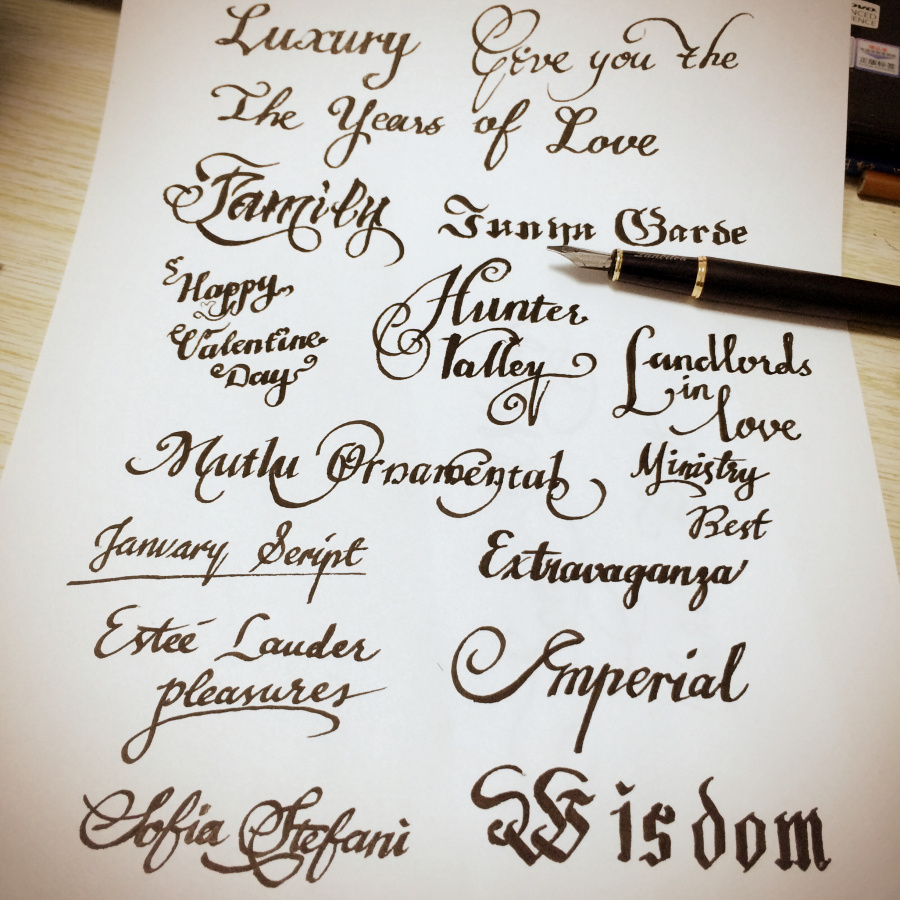 Luxury Give you the
The Years of Love
Family
Garde
Happy
Valentine
Day
Hunter
Valley
Landlords
in
love
Mutlu Ornamental
Ministry
Best
January Script
Extravaganza
Esteé Lauder
pleasures
Imperial
Sofia Stefani
Wisdom